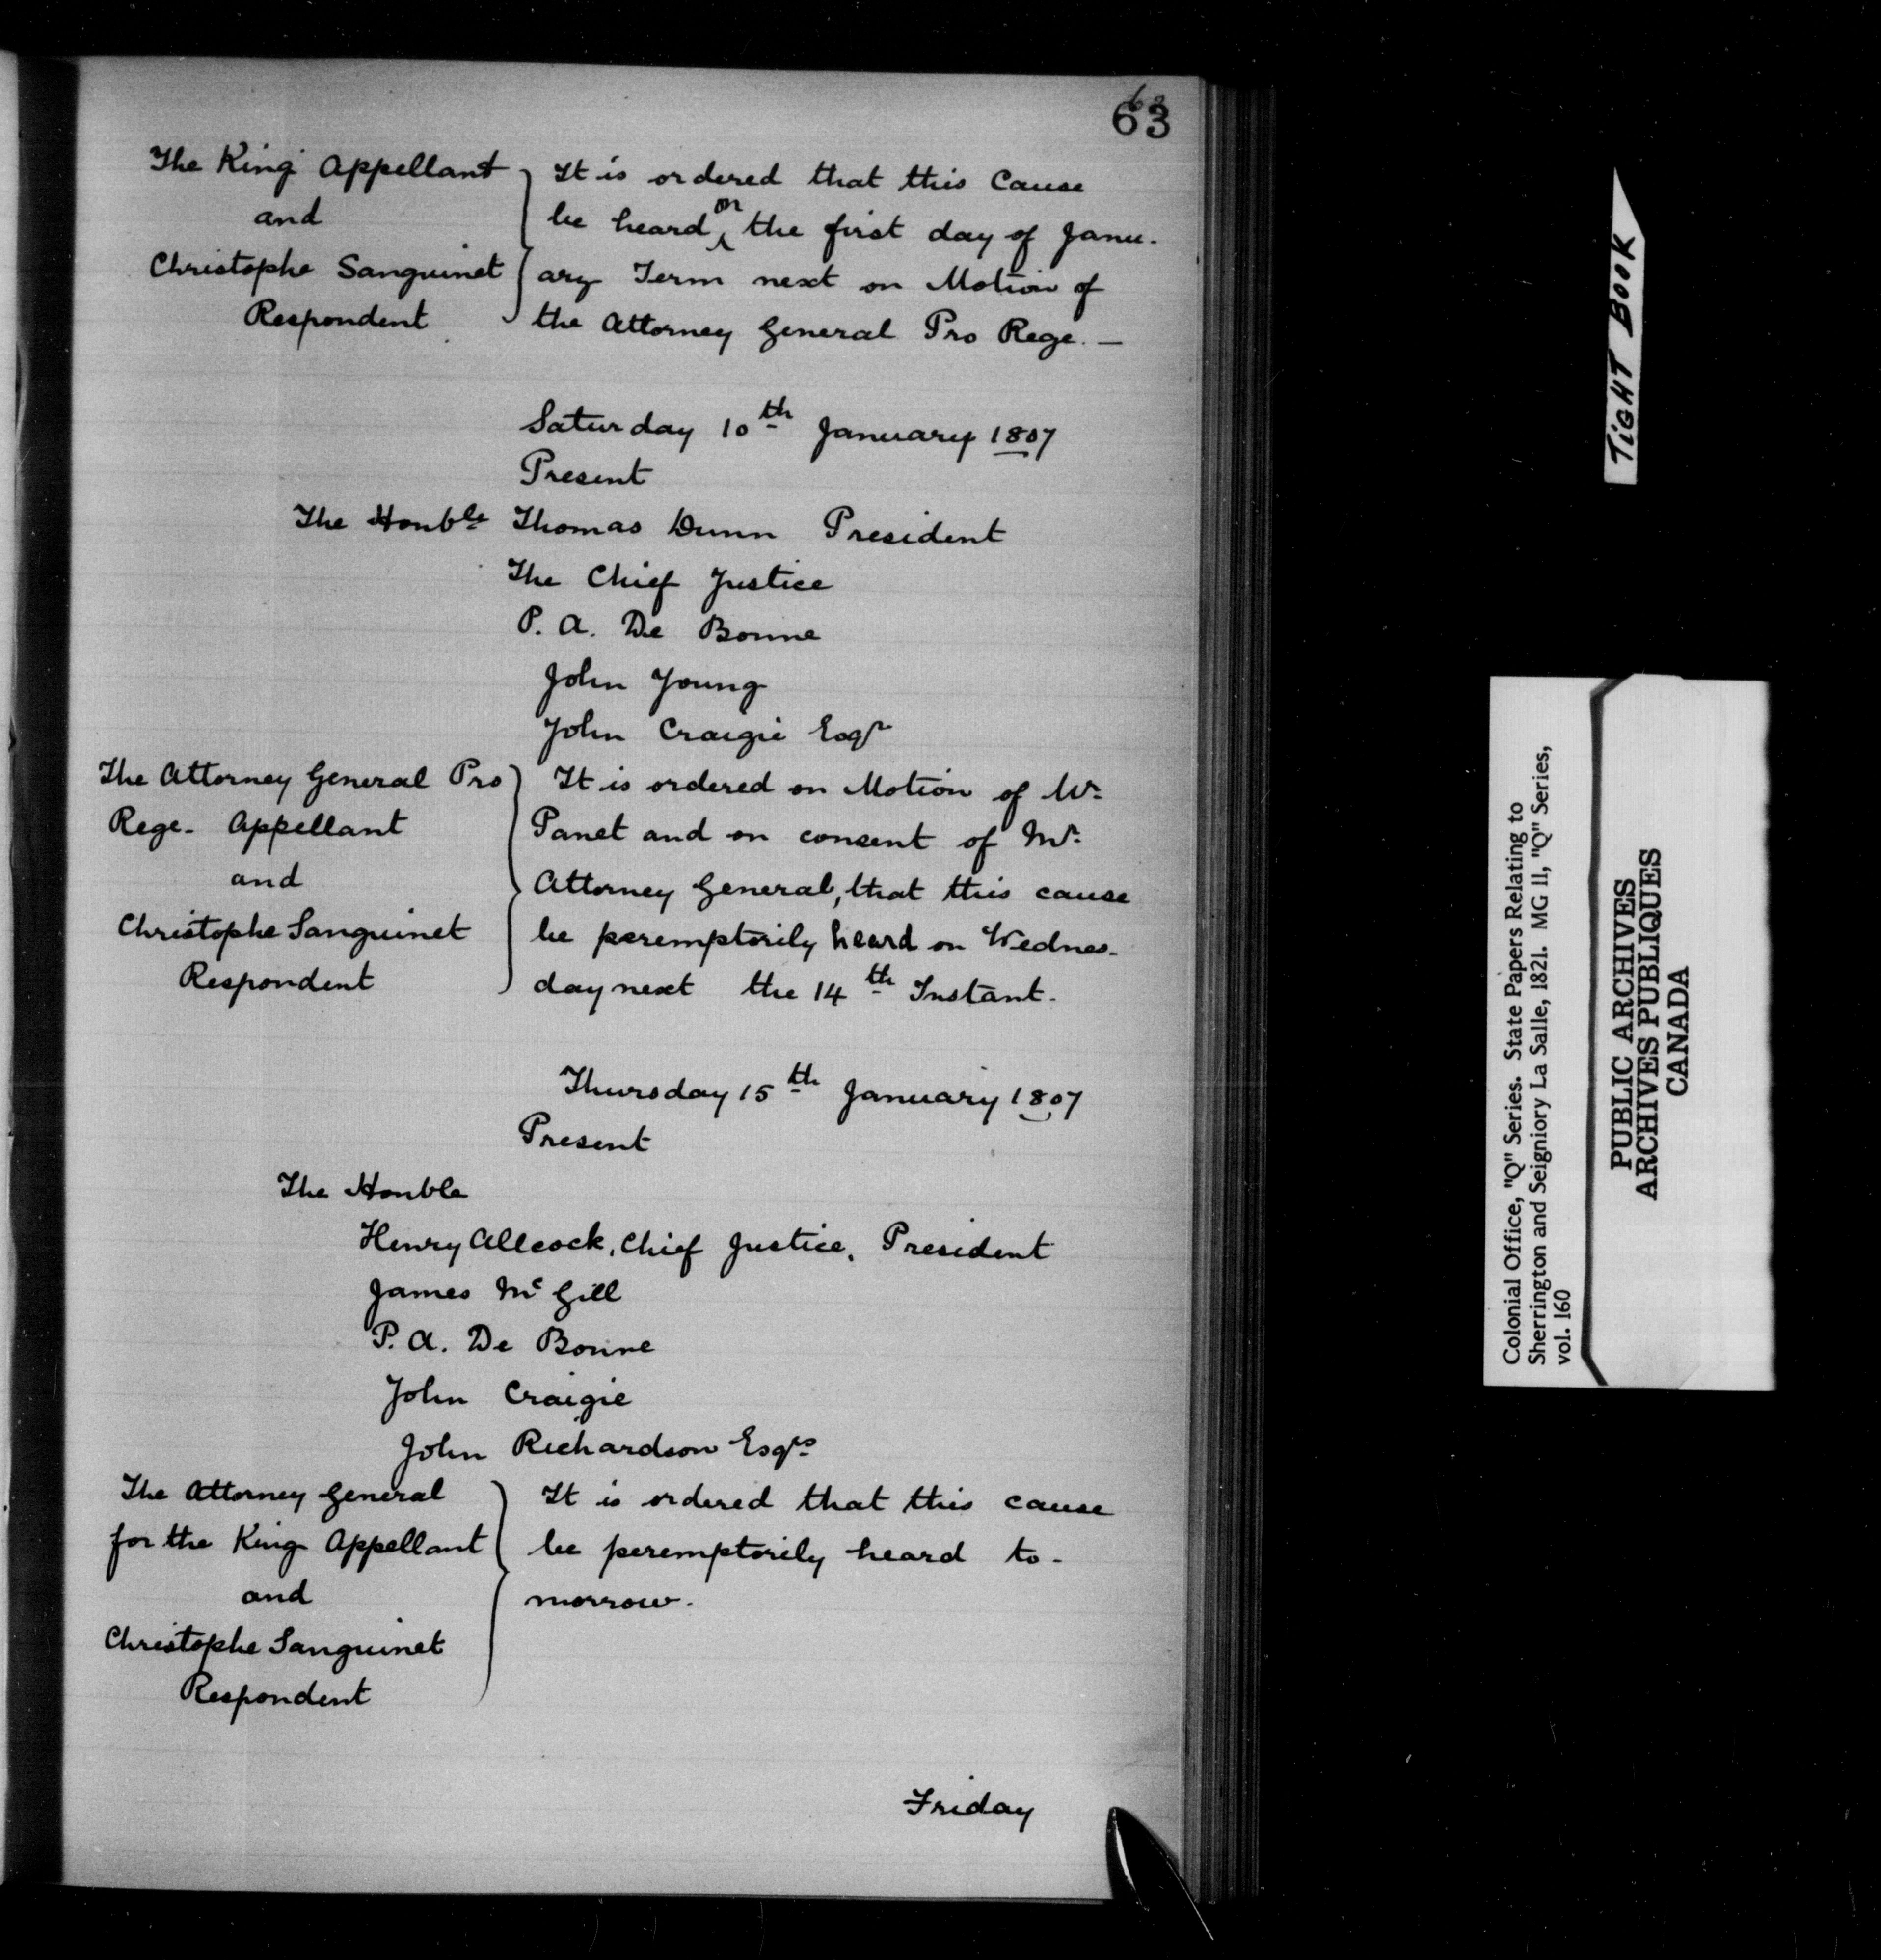 63
The King Appellant
and
Christophe Sanguinet
Respondent
It is ordered that this Cause
be heard on the first day of Janu-
ary Term next on Motion of
the Attorney General Pro Rege. —
Saturday 10th January 1807
Present
The Honble Thomas Dunn President
The Chief Justice
P. A. De Bonne
John Young
John Craigie Esqr
The Attorney General Pro
Rege. Appellant
and
Christophe Sanguinet
Respondent
It is ordered on Motion of Mr
Panet and on consent of Mr
Attorney General, that this cause
be peremptorily heard on Wednes-
day next the 14th Instant.
Thursday 15th January 1807
Present
The Honble
Henry Allcock, Chief Justice, President
James Mc Gill
P. A. De Bonne
John Craigie
John Richardson Esqrs
The Attorney General
for the King Appellant
and
Christophe Sanguinet
Respondent
It is ordered that this cause
be peremptorily heard to-
morrow.
Friday
TIGHT BOOK
Colonial Office, "Q" Series. State Papers Relating to
Sherrington and Seigniory La Salle, 1821. MG 11, "Q" Series,
vol. 160
PUBLIC ARCHIVES
ARCHIVES PUBLIQUES
CANADA